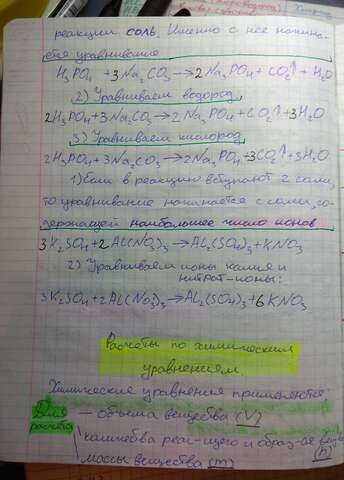 реакции соль. Именно с неё начина-
ется уравнивание
H₃PO₄ + 3Na₂CO₃ → 2Na₃PO₄ + CO₂↑ + H₂O
2) Уравниваем водород
2H₃PO₄ + 3Na₂CO₃ → 2Na₃PO₄ + CO₂↑ + 3H₂O
3) Уравниваем кислород
2H₃PO₄ + 3Na₂CO₃ → 2Na₃PO₄ + 3CO₂↑ + 3H₂O
1) Если в реакцию вступают 2 соли,
то уравнивание начинается с соли, со-
держащей наибольшее число ионов
3K₂SO₄ + 2Al(NO₃)₃ → Al₂(SO₄)₃ + KNO₃
2) Уравниваем ионы калия и
нитрат-ионы:
3K₂SO₄ + 2Al(NO₃)₃ → Al₂(SO₄)₃ + 6KNO₃
Расчёты по химическим
уравнениям
Химические уравнения применяются
Для расчёта
– объёма вещества (V)
количества реаг-щего и образ-ся (n)
массы вещества (m)